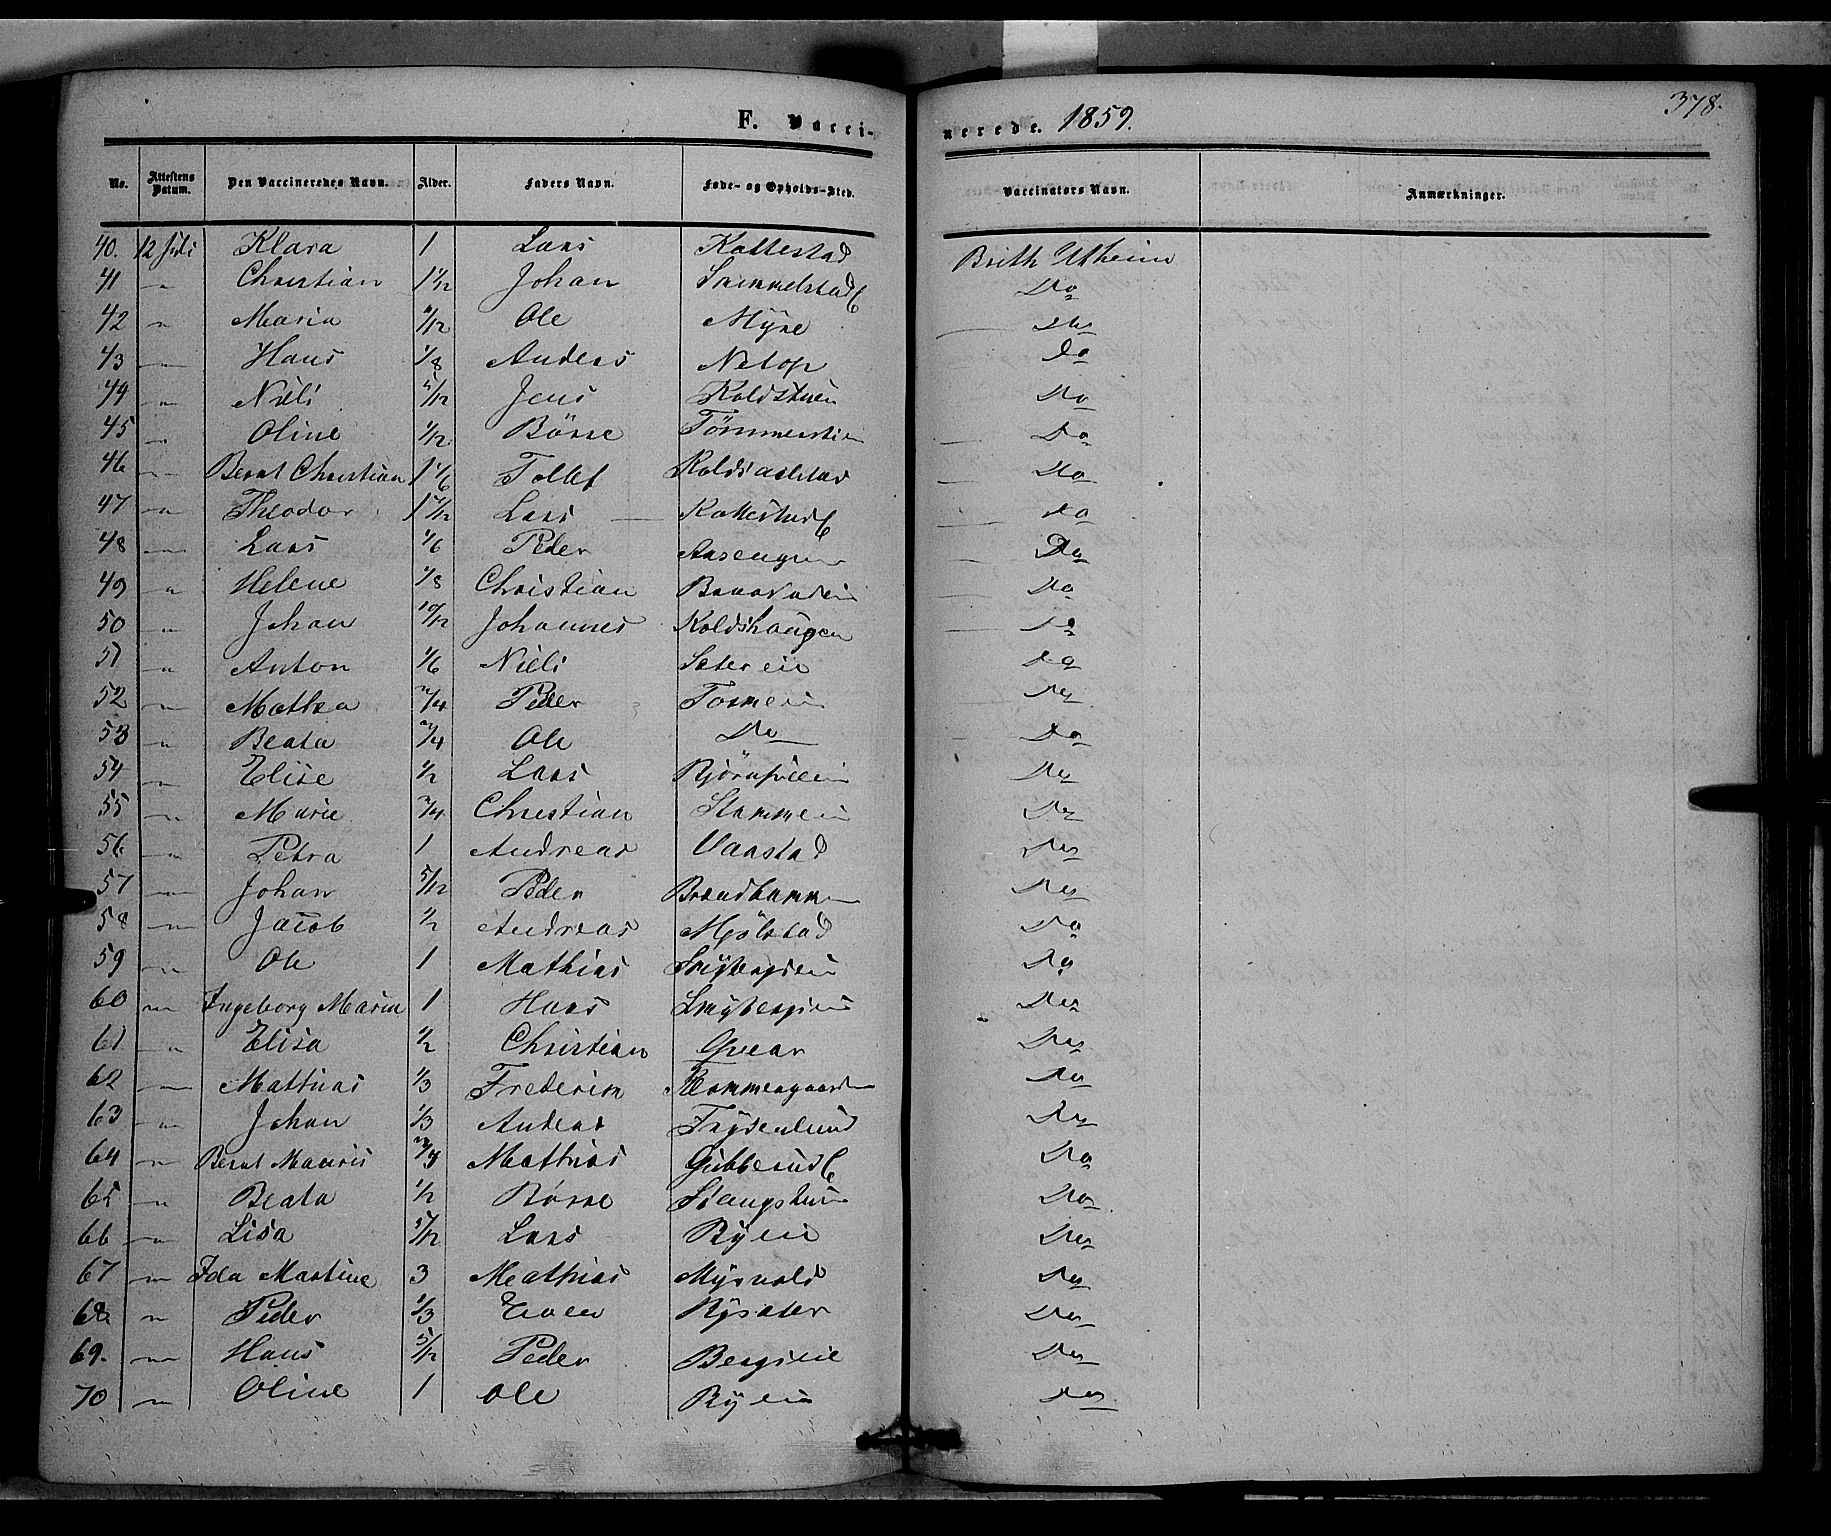 378.
F. Vaccinerede. 1859.
No. Attestens Datum. Den Vaccineredes Navn. Alder. Faders Navn. Føde- og Opholds-Sted. Vaccinators Navn. Anmærkninger.
40. 12 Juli Klara 1 Lars Kattestad Brith Utheim
41 " Christian 1 1/12 Johan Simmelstad Do
42 " Maria Ole Myre Do
43 " Hans 1/8 Anders Netop Do
44 " Nils 5/12 Jens Koldstuen Do
45 " Oline 1/12 Børre Do
46 " Bernt Christian 1 1/6 Tollef Do
47 " Theodor Lars Kattestad Do
48 " Lars 1/6 Peder Aasengen Do
49 " Helene 1/8 Christian Do
50 " Johan 10/12 Johannes Koldshaugen Do
51 " Anton 1/6 Nils Setereie Do
52 " Mathea 3/4 Peder Do
53 " Beata 3/4 Ole Do Do
54 " Elise 1/2 Lars Do
55 " Marie 3/4 Christian Do
56 " Petra 1 Andreas Vaarstad Do
57 " Johan 5/12 Peder Do
58 " Jacob 1/2 Andreas Mjølstad Do
59 " Ole 1 Mathias Do
60 " Ingeborg Maria 1 Hans Do
61 " Elisa 1/2 Christian Do
62 " Mathias 1/3 Frederik Do
63 " Johan 1/3 Anders Frydenlund Do
64 " Bernt Mauris Mathias Gubberud Do
65 " Beata 1/2 Børre Do
66 " Lisa 5/12 Lars Ryeie Do
67 " Ida Martine 3 Mathias Myrvold Do
68 " Peder 1/3 Even Rysæter Do
69. " Hans 5/12 Peder Bergseie Do
70 " Oline 1 Ole Ryeie Do